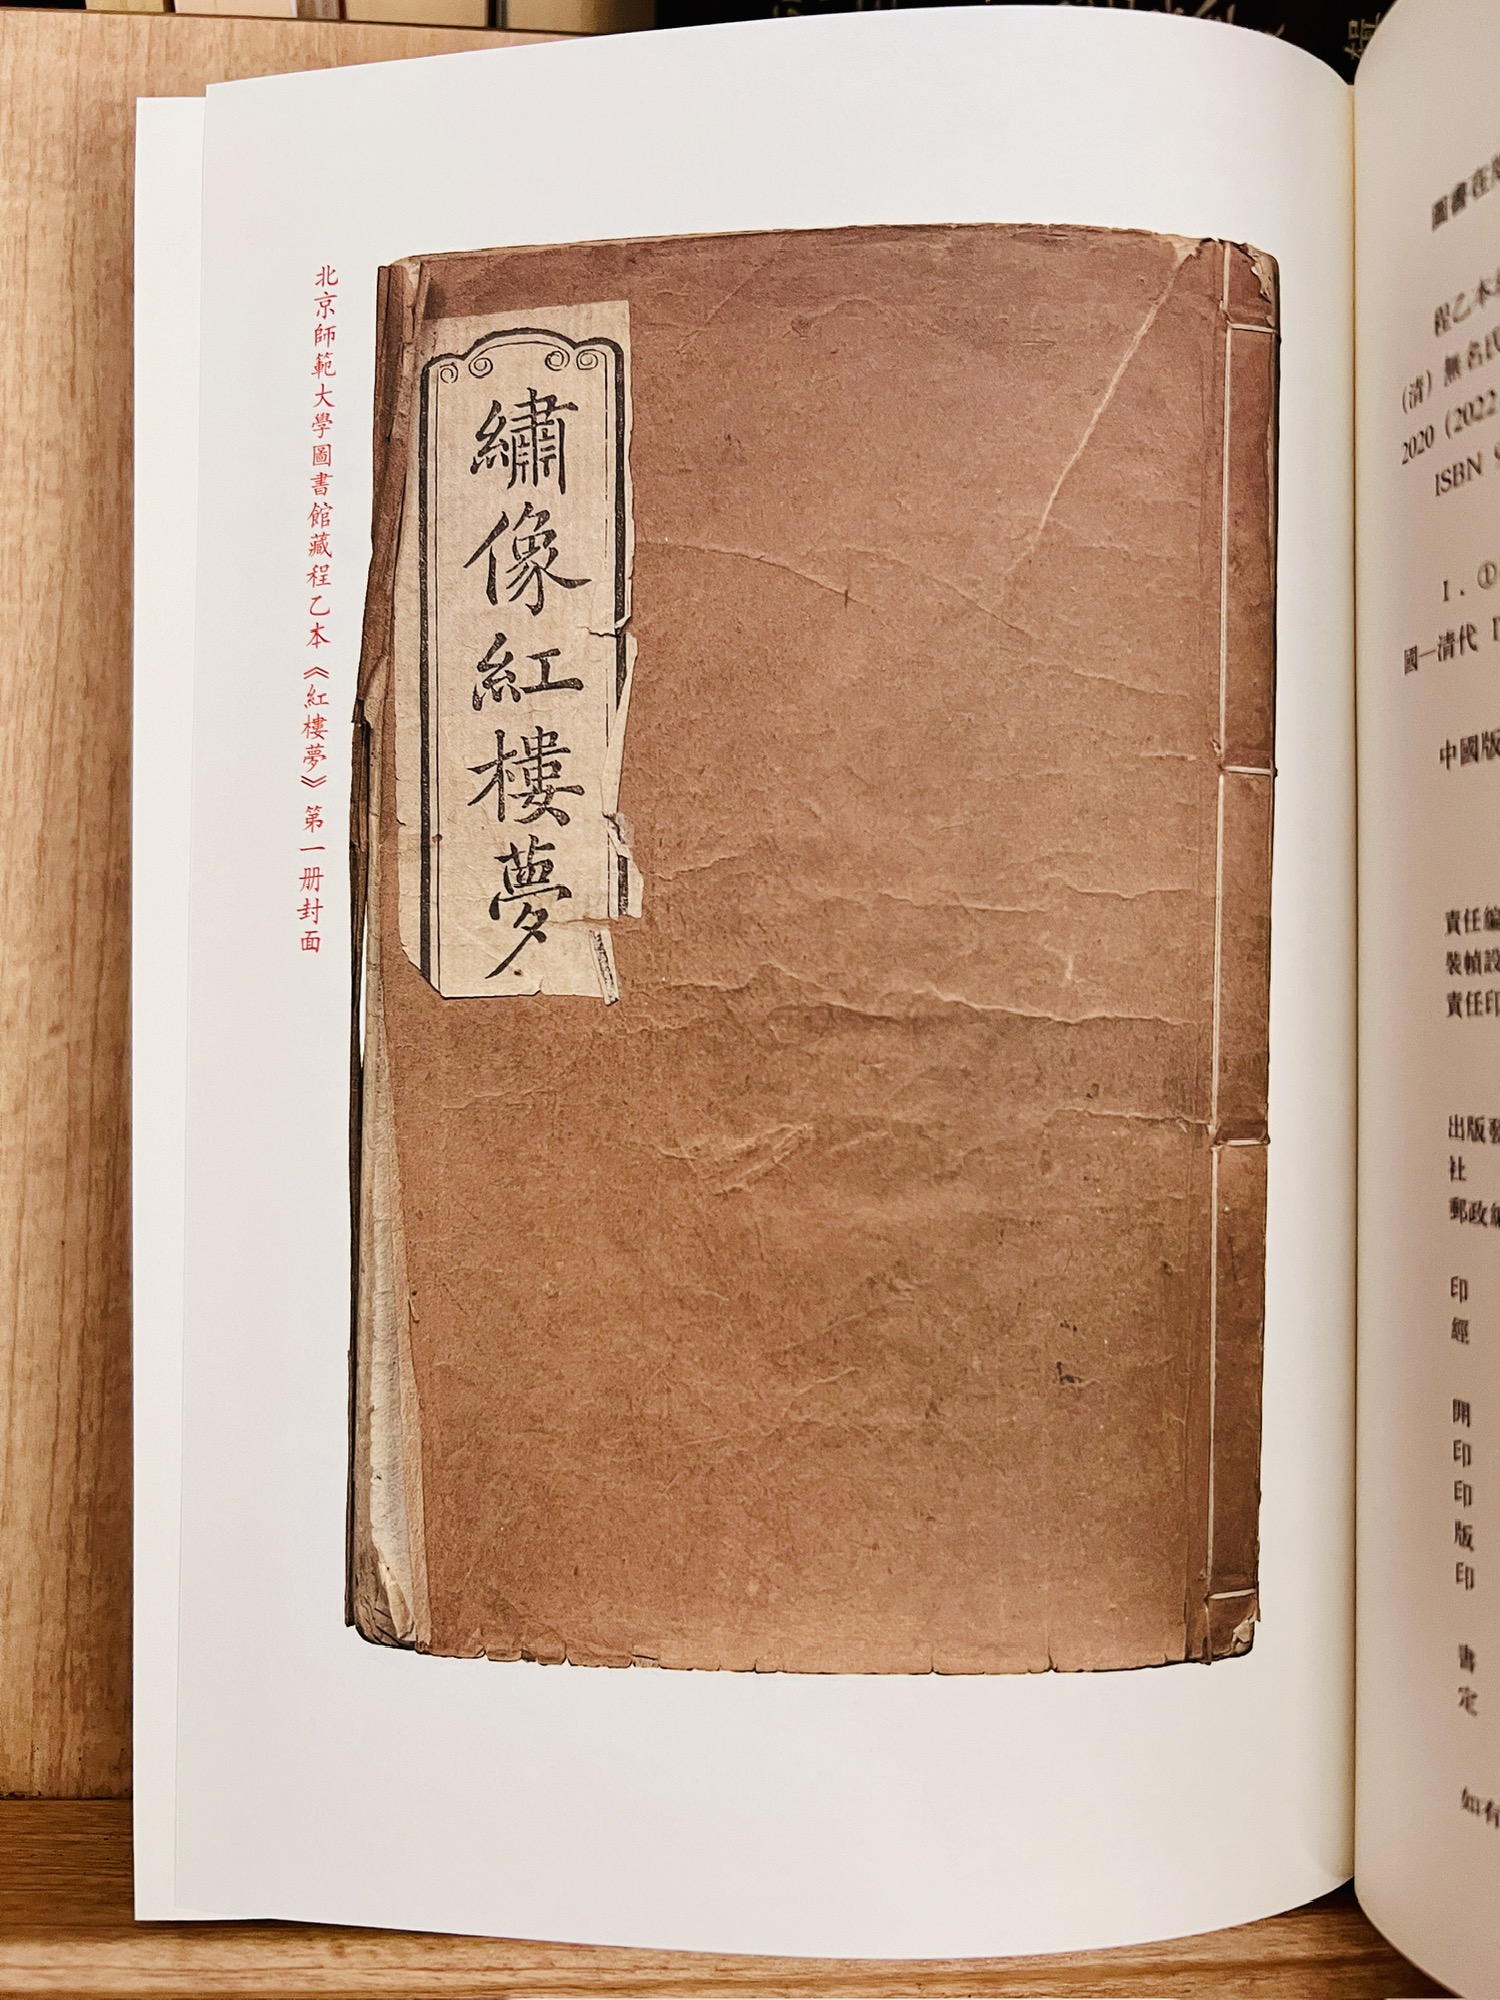 北京師範大學圖書館藏程乙本《紅樓夢》第一册封面
繡像紅樓夢
圖書在版
程乙本
(清)無名氏
2020 (2022
ISBN 9
I. ①
國—清代 I
中國版
責任編
裝幀設
責任印
出版發
社
郵政編
印
經
開
印
印
版
印
書
定
如有